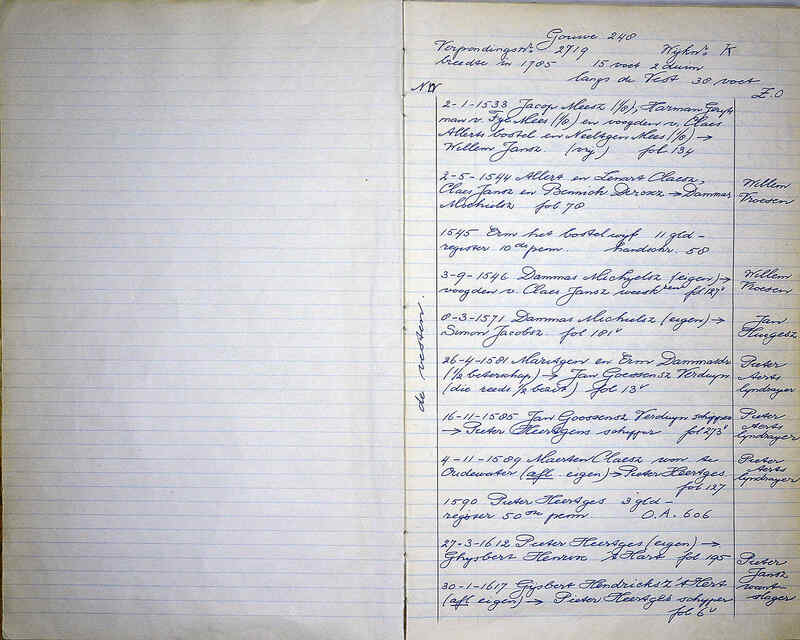 Gouwe 248
Verpondingsnr. 2719 Wijknr. K
breedte in 1785 15 voet 2 duim
langs de Vest 38 voet
NW Z.O
2-1-1538 Jacop Meesz (1/8), Harman
man v. Fye Mees (1/8) en voogden v. Claes
Allerts bostel en Neeltgen Mees (1/8) →
Willem Jansz. (vrij) fol 134
2-5-1544 Allert en Lenart Claesz,
Claes Jansz en Dircxz → Dammas
Michielsz fol 78
Willem
Vroesen
1545 Erm het bostelwijf 11 gld -
register 10de penn. handschr. 58
3-9-1546 Dammas Michgelsz (eigen) →
voogden v. Claes Jansz weeskent fol 127v
Willem
Vroesen
8-3-1571 Dammas Michielsz (eigen) →
Simon Jacobsz. fol 181v
Jan
Huigesz
de vesten.
26-4-1581 Maritgen en Erm Dammasdr
(1/2 beterschap) → Jan Goessensz Verduyn
(die reeds 1/2 bezit) fol 13v
Pieter
Aerts
lyndrayer
16-11-1585 Jan Goossensz Verduyn schipper
→ Pieter Heertgens schipper fol 273v
Pieter
Aerts
lyndrayer
4-11-1589 Maerten Claesz won. te
Oudewater (afl. eigen) → Pieter Heertges
fol 137
Pieter
Aerts
lyndrayer
1590 Pieter Heertges 3 gld -
register 50ste penn O.A. 606
27-3-1612 Pieter Heertges (eigen) →
Ghysbert Henrixz 't Hart fol 195
Pieter
Jansz
want-
slager
30-1-1617 Gijsbert Hendricksz 't Hert
(afl eigen) → Pieter Heertges schipper
fol 6v